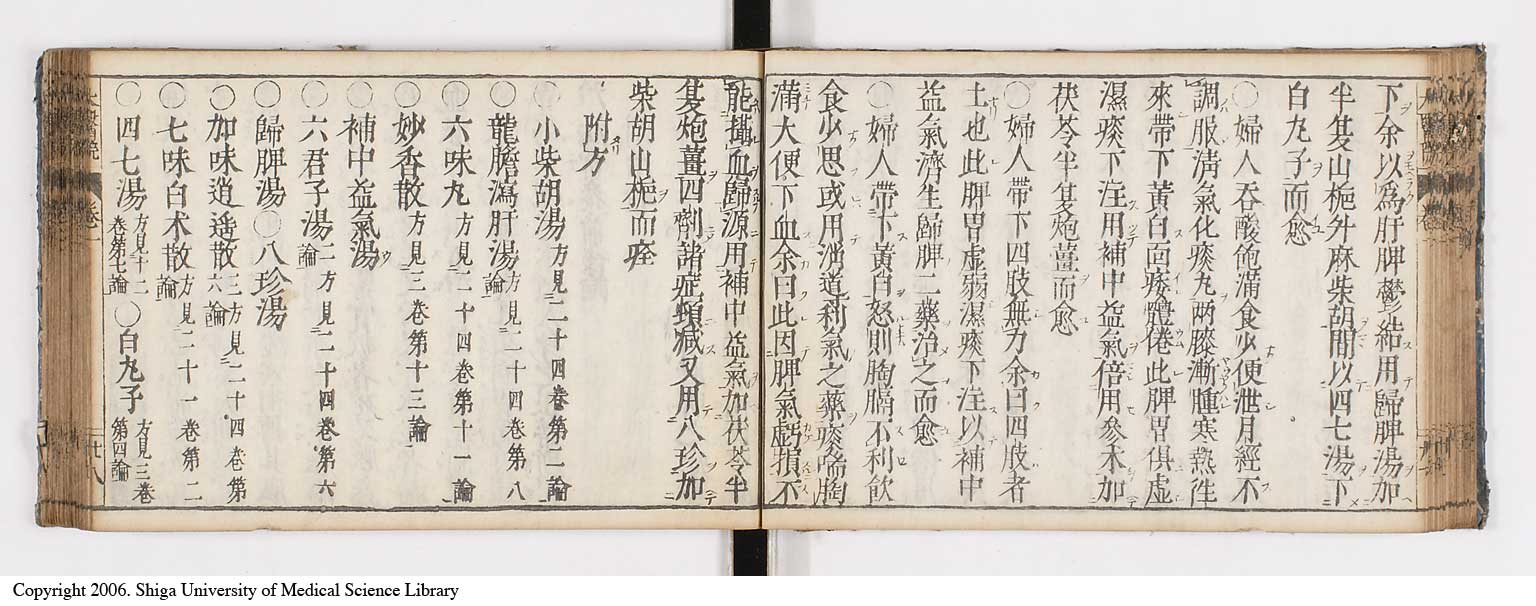 下余以爲肝脾鬱結用歸脾湯加
半夏山梔升麻柴胡間以四七湯下
白丸子而愈
○婦人吞酸飽滿食少便泄月經不
調服淸氣化痰丸兩膝漸腫寒熱往
來帶下黃白面痿體倦此脾胃俱虛
濕痰下注用補中益氣倍用參朮加
茯苓半夏炮薑而愈
○婦人帶下四肢無力余曰四肢者
土也此脾胃虛弱濕痰下注以補中
益氣濟生歸脾二藥治之而愈
○婦人帶下黃白怒則胸膈不利飲
食少思或用消導利氣之藥痰喘胸
滿大便下血余曰此因脾氣虧損不
能攝血歸源用補中益氣加茯苓半
夏炮薑四劑諸症頓減又用八珍加
柴胡山梔而痊
附方
○小柴胡湯方見二十四卷第二論
○龍膽瀉肝湯方見二十四卷第八論
○六味丸方見二十四卷第十一論
○妙香散方見三卷第十三論
○補中益氣湯
○六君子湯二方見二十四卷第六論
○歸脾湯○八珍湯
○加味逍遙散三方見二十四卷第六論
○七味白朮散方見二十一卷第二論
○四七湯方見十二卷第七論○白丸子方見三卷第四論
卷一
廿八
Copyright 2006. Shiga University of Medical Science Library